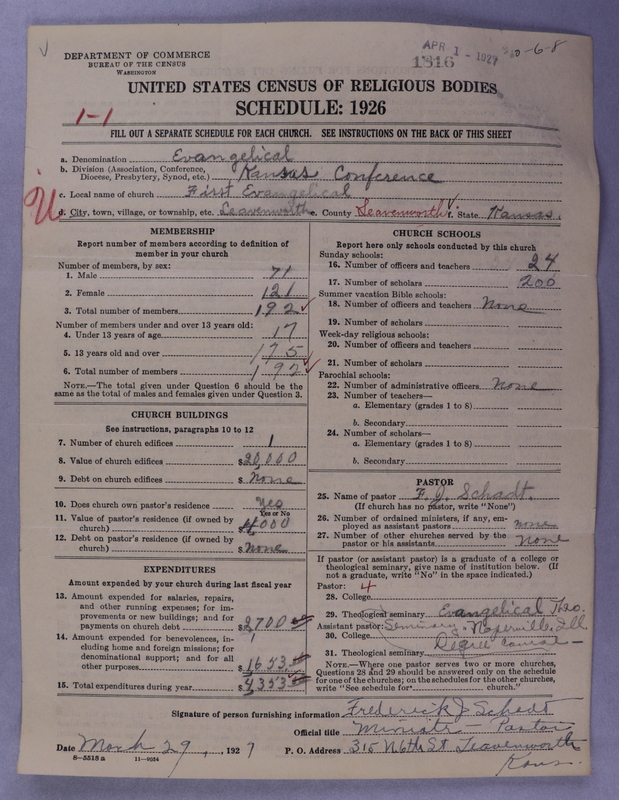 DEPARTMENT OF COMMERCE
BUREAU OF THE CENSUS
WASHINGTON
APR 1 - 1927
1316
30-6-8
UNITED STATES CENSUS OF RELIGIOUS BODIES
SCHEDULE: 1926
1-1
FILL OUT A SEPARATE SCHEDULE FOR EACH CHURCH. SEE INSTRUCTIONS ON THE BACK OF THIS SHEET
a. Denomination Evangelical
b. Division (Association, Conference, Diocese, Presbytery, Synod, etc.) Kansas Conference
c. Local name of church First Evangelical
U
d. City, town, village, or township, etc. Leavenworth e. County Leavenworth f. State Kansas.
MEMBERSHIP
Report number of members according to definition of
member in your church
Number of members, by sex:
1. Male 71
2. Female 121
3. Total number of members 192
Number of members under and over 13 years old:
4. Under 13 years of age 17
5. 13 years old and over 175
6. Total number of members 192
NOTE.—The total given under Question 6 should be the
same as the total of males and females given under Question 3.
CHURCH BUILDINGS
See instructions, paragraphs 10 to 12
7. Number of church edifices 1
8. Value of church edifices $20,000
9. Debt on church edifices $ None
10. Does church own pastor's residence Yes
Yes or No
11. Value of pastor's residence (if owned by
church) $4,000
12. Debt on pastor's residence (if owned by
church) $None
EXPENDITURES
Amount expended by your church during last fiscal year
13. Amount expended for salaries, repairs,
and other running expenses; for im-
provements or new buildings; and for
payments on church debt $2700
14. Amount expended for benevolences, in-
cluding home and foreign missions; for
denominational support; and for all
other purposes $1653
15. Total expenditures during year $4353
CHURCH SCHOOLS
Report here only schools conducted by this church
Sunday schools:
16. Number of officers and teachers 24
17. Number of scholars 200
Summer vacation Bible schools:
18. Number of officers and teachers None
19. Number of scholars
Week-day religious schools:
20. Number of officers and teachers
21. Number of scholars
Parochial schools:
22. Number of administrative officers None
23. Number of teachers—
a. Elementary (grades 1 to 8)
b. Secondary
24. Number of scholars—
a. Elementary (grades 1 to 8)
b. Secondary
PASTOR
25. Name of pastor F. J. Schadt.
(If church has no pastor, write "None")
26. Number of ordained ministers, if any, em-
ployed as assistant pastors none
27. Number of other churches served by the
pastor or his assistants none
If pastor (or assistant pastor) is a graduate of a college or
theological seminary, give name of institution below. (If
not a graduate, write "No" in the space indicated.)
Pastor: 4
28. College
29. Theological seminary Evangelical Theo.
Assistant pastor: Seminary - Naperville, Ill
30. College Degree Course
31. Theological seminary
NOTE.—Where one pastor serves two or more churches,
Questions 28 and 29 should be answered only on the schedule
for one of the churches; on the schedules for the other churches,
write "See schedule for church."
Signature of person furnishing information Frederick J Schadt
Official title Minister Pastor
Date March 29, 1927 P. O. Address 315 N 6th St Leavenworth
Kans.
8—5518 a 11—9054